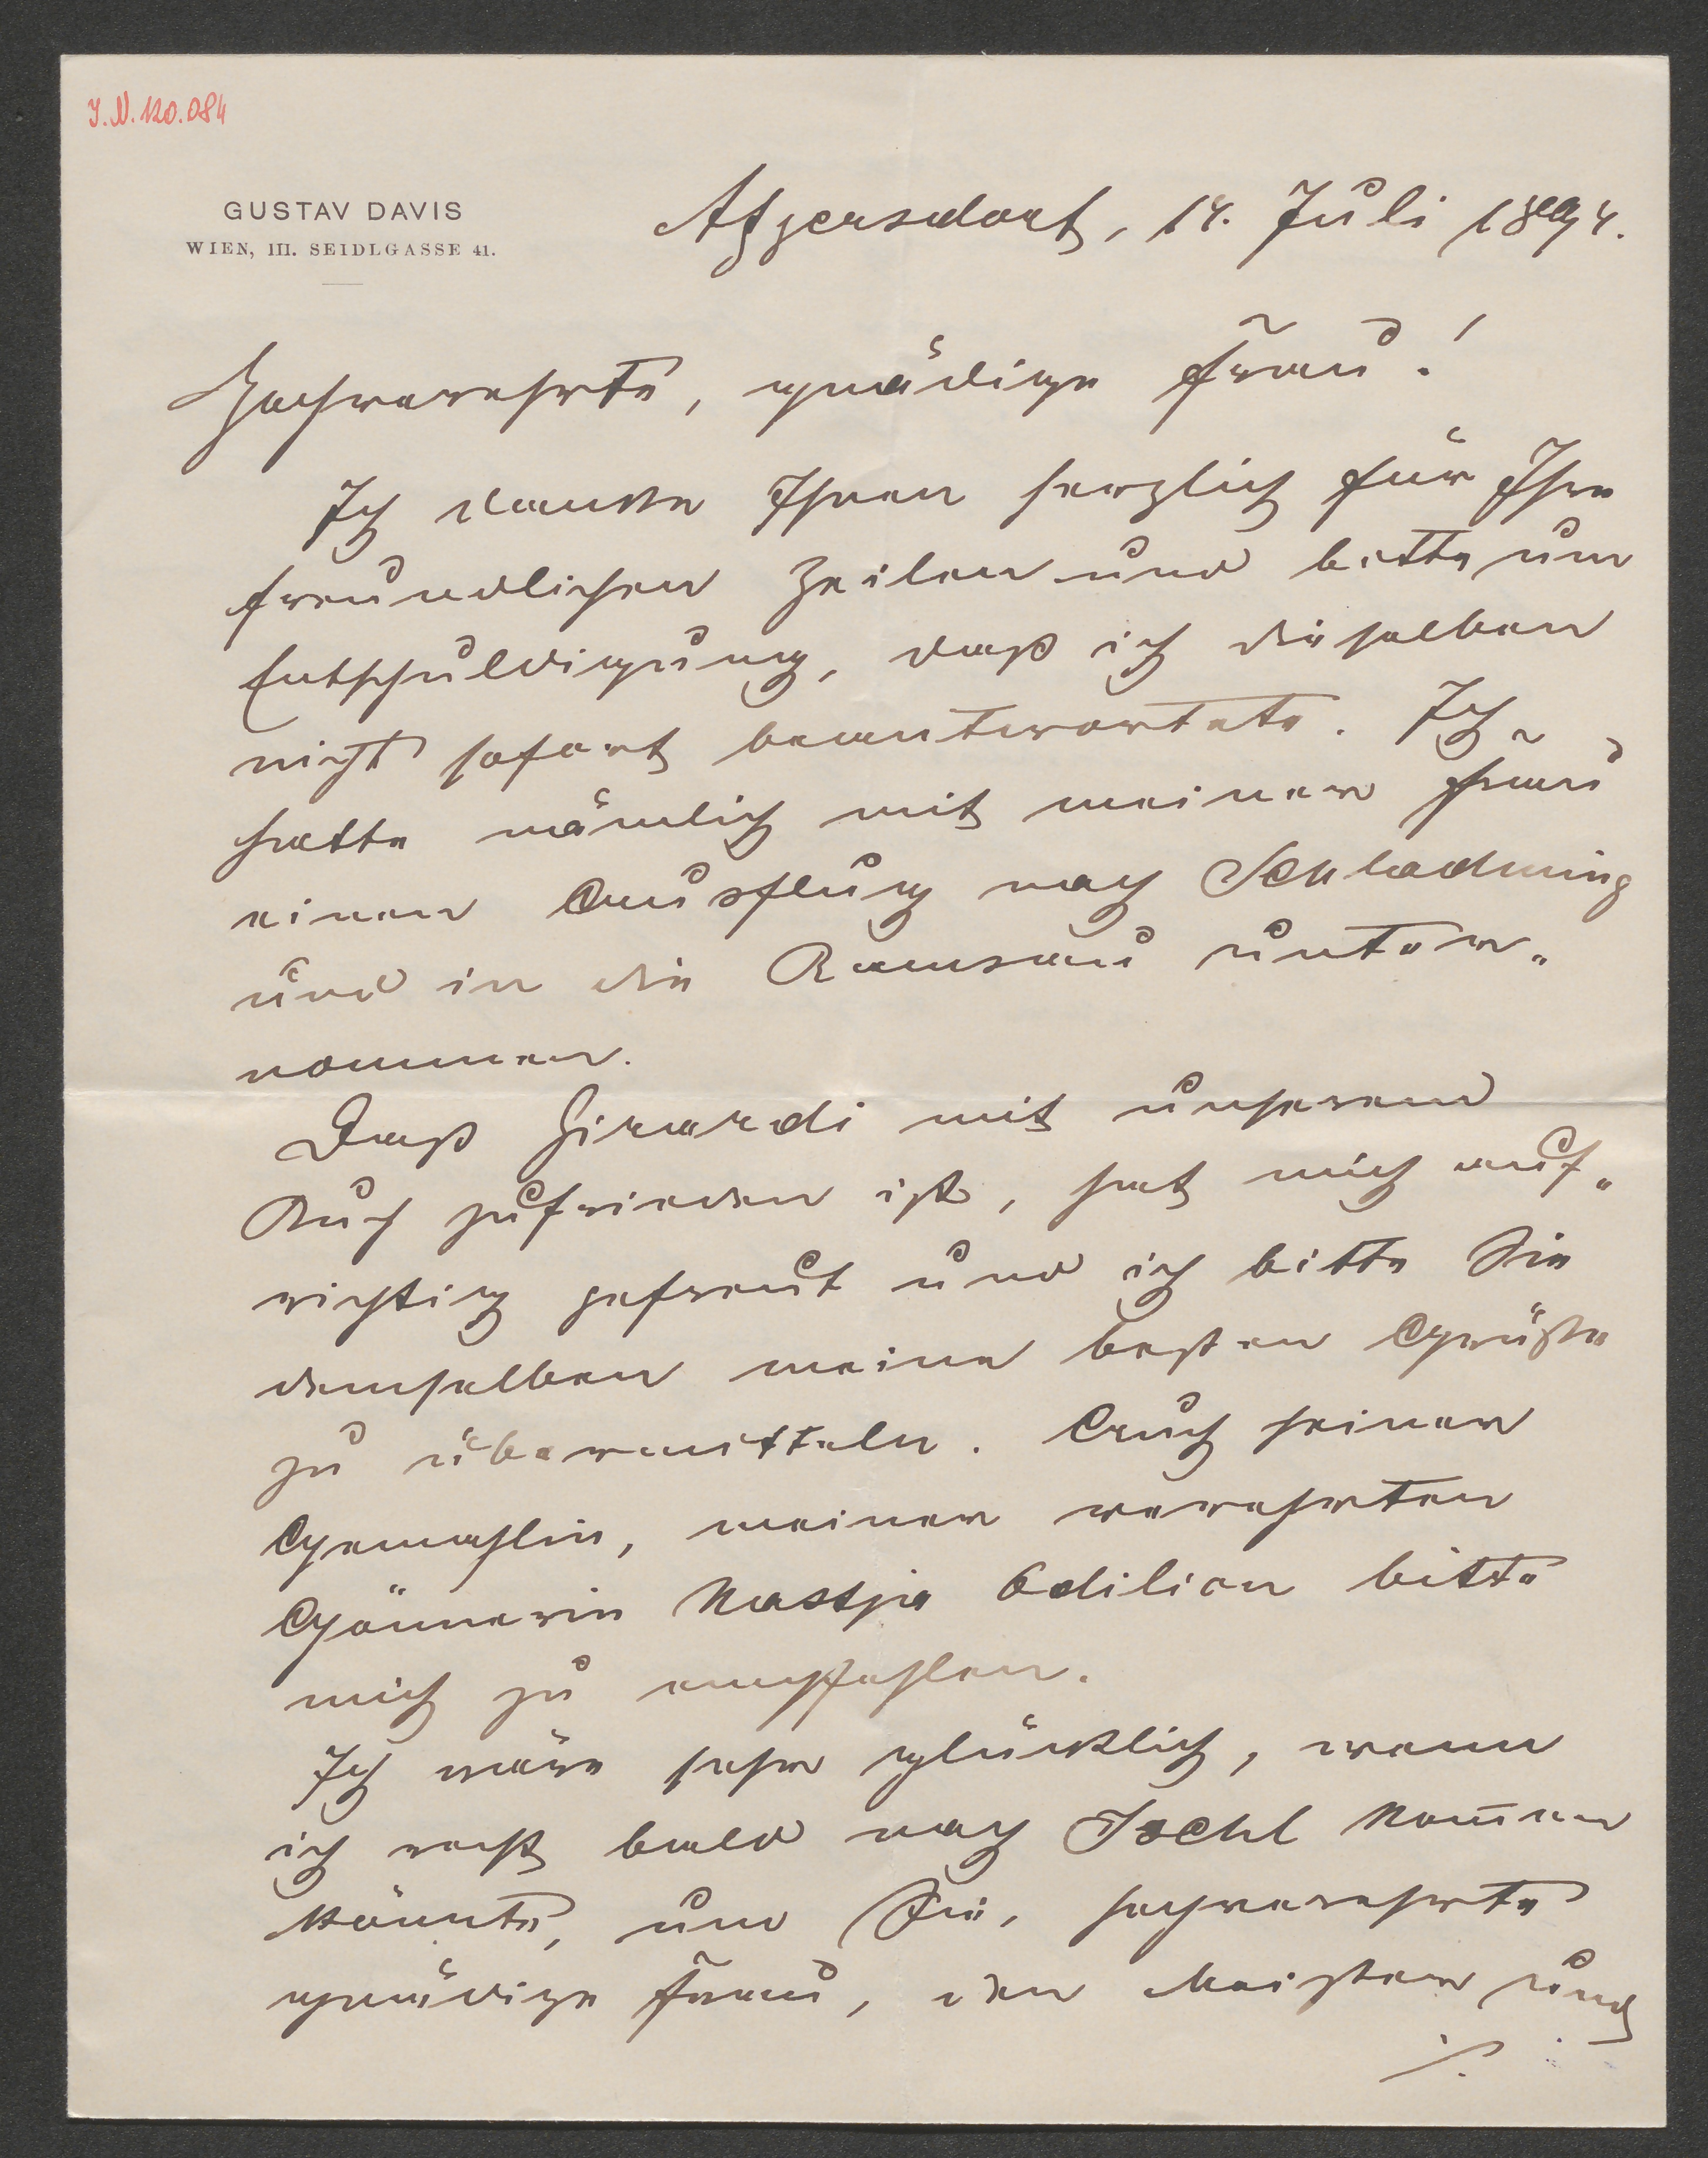 I.N. 120.084
GUSTAV DAVIS
WIEN, III. SEIDLGASSE 41.
Atzgersdorf, 14. Juli 1894.
Hochverehrte, gnädige Frau!
Ich danke Ihnen herzlich für Ihre
freundlichen Zeilen und bitte um
Entschuldigung, daß ich dieselben
nicht sofort beantwortete. Ich
hatte nämlich mit meiner Frau
einen Ausflug nach Schladming
und in die Ramsau unter„
nommen.
Daß Girardi mit unserem
Buch zufrieden ist, hat mich auf„
richtig gefreut und ich bitte Sie
demselben meine besten Grüße
zu übermitteln. Auch seiner
Gemahlin, meiner verehrten
Gönnerin Kattja Odilion bitte
mich zu empfehlen.
Ich wäre sehr glücklich, wenn
ich recht bald nach Ischl kom̄en
könnte, um Sie, hochverehrte
gnädige Frau, den Meister und
./.